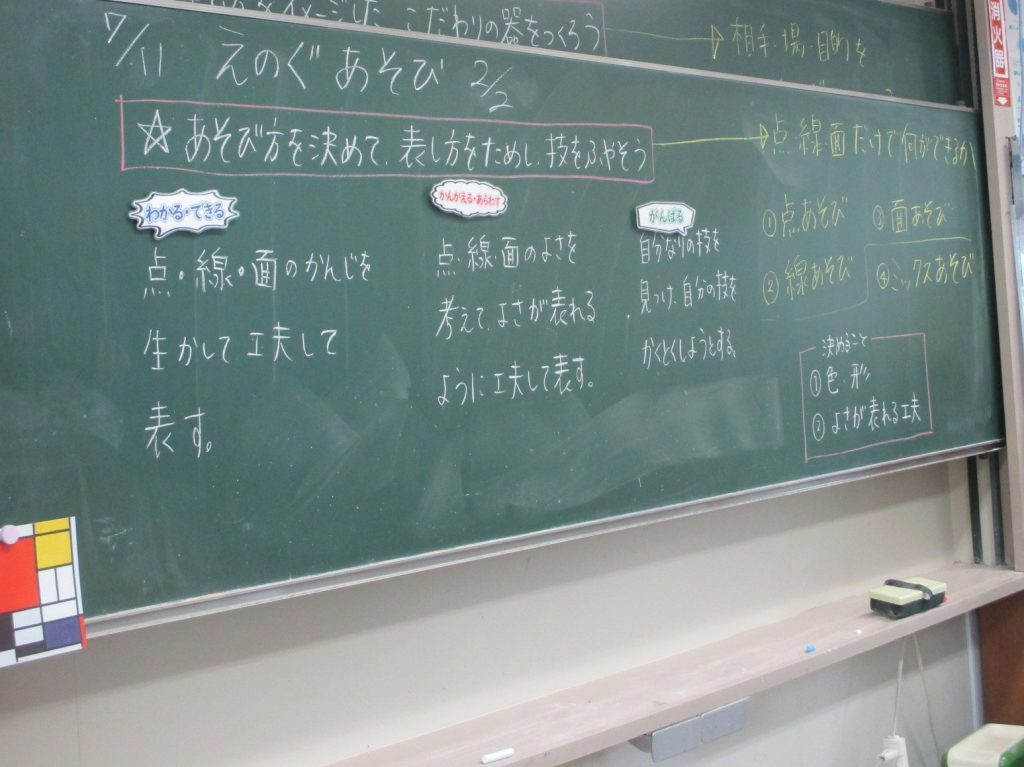 イメージした、こだわりの器をつくろう
相手・場・目的を
消火器
7/11 えのぐあそび 2/2
☆ あそび方を決めて、表し方をためし、技をふやそう
点・線・面だけで何ができるか
わかる・できる
点・線・面のかんじを
生かして工夫して
表す。
かんがえる・あらわす
点・線・面のよさを
考えて、よさが表れる
ように工夫して表す。
がんばる
自分なりの技を
見つけ、自分の技を
かくとくしようとする。
①点あそび
②線あそび
③面あそび
④ミックスあそび
決めること
①色・形
②よさが表れる工夫